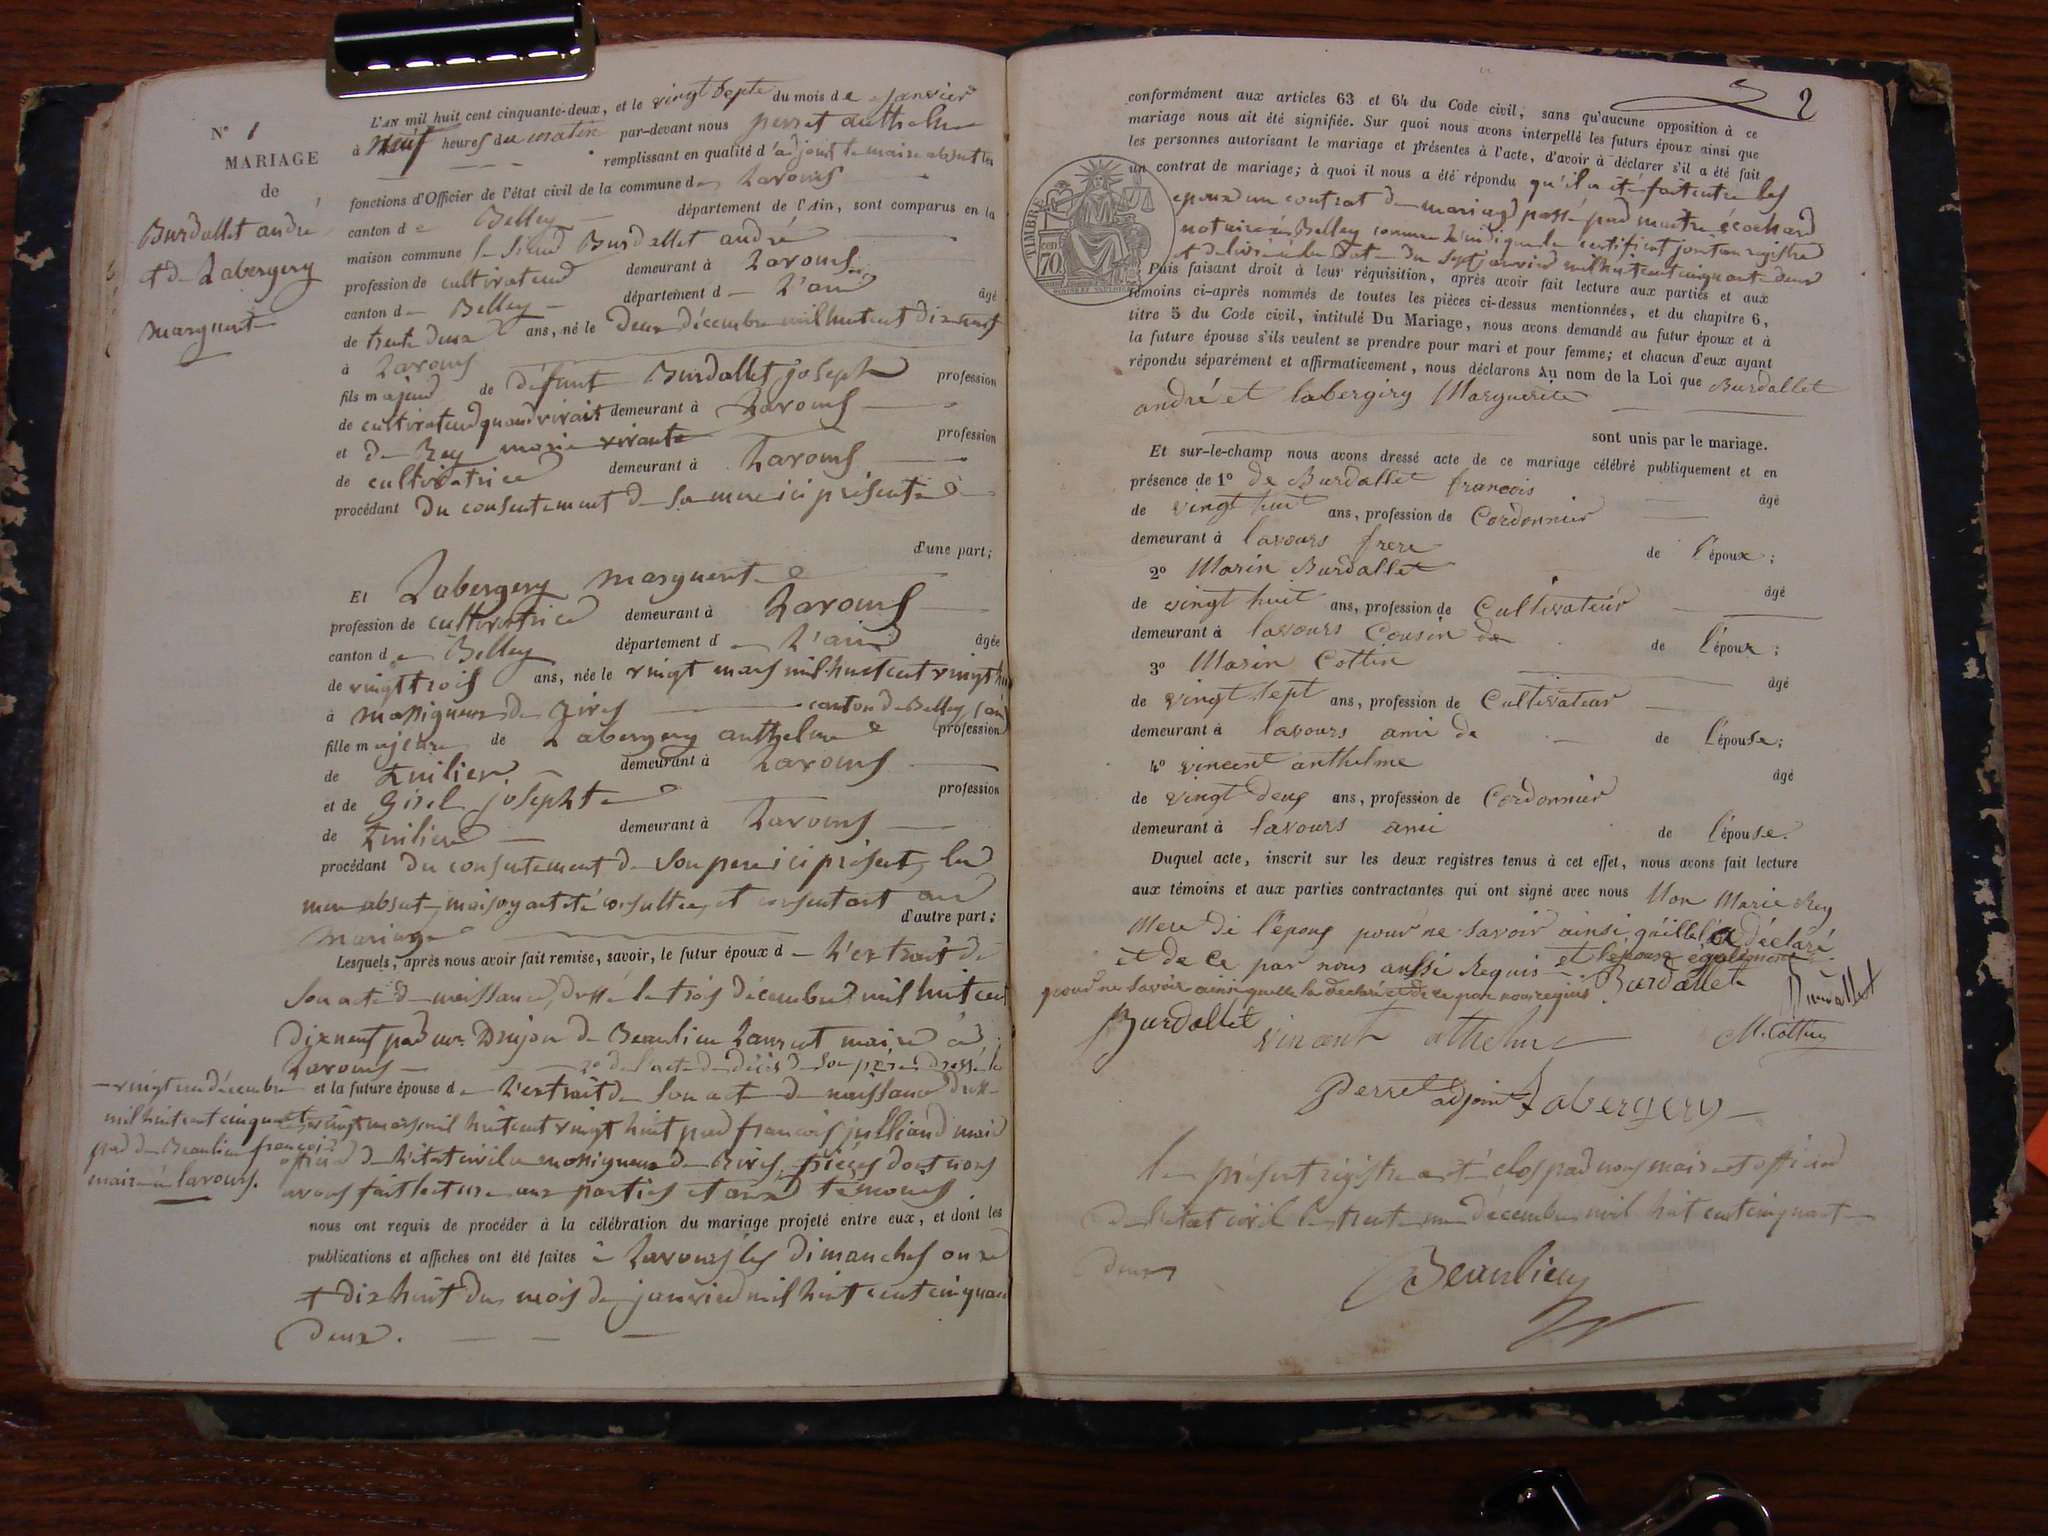 N° 1
MARIAGE
de
Burdallet andré
et de Labergery
marguerite
L'AN mil huit cent cinquante-deux, et le vingt septe du mois de janvier
à neuf heures du matin par-devant nous perret anthelme
remplissant en qualité d'adjoint le maire absent les
fonctions d'Officier de l'état civil de la commune de Lavours
canton de Belley département de l'Ain, sont comparus en la
maison commune le sieur Burdallet andré
profession de cultivateur demeurant à Lavours
canton de Belley département de L'ain âgé
de trente deux ans, né le deux décembre mil huit cent dix neuf
à Lavours
fils majeur de défunt Burdallet joseph profession
de cultivateur quand vivait demeurant à Lavours
et de Rey marie vivante profession
de cultivatrice demeurant à Lavours
procédant du consentement de sa mere ici présente
d'une part;
Et Labergery marguerite
profession de cultivatrice demeurant à Lavours
canton de Belley département de L'ain âgée
de vingt trois ans, née le vingt mars mil huit cent vingt hu
à massigneux de Rives canton de Belley (ain)
fille majeure de Labergery anthelme profession
de Tuilier demeurant à Lavours
et de Girel josephte profession
de Tuiliere demeurant à Lavours
procédant du consentement de son pere ici présent, la
mere absente mais ayant été consultée, et consentant au
d'autre part;
mariage
Lesquels, après nous avoir fait remise, savoir, le futur époux de L'extrait de
son acte de naissance, dressé le trois décembre mil huit cent
dix neuf par mr Drujon de Beaulieu Laurent maire à
Lavours 2° de l'acte de décès de son père dressé le
vingt un décembre
mil huit cent cinquante
par de Beaulieu françois
maire à lavours.
et la future épouse de L'extrait de son acte de naissance dressé
le vingt mars mil huit cent vingt huit par françois julliand maire
officier de L'état civil a massigneux de Rives, pièces dont nous
avons fait lecture aux parties et aux témoins
nous ont requis de procéder à la célébration du mariage projeté entre eux, et dont les
publications et affiches ont été faites à Lavours les dimanches onze
et dix huit du mois de janvier mil huit cent cinquante
deux.
2
conformément aux articles 63 et 64 du Code civil, sans qu'aucune opposition à ce
mariage nous ait été signifiée. Sur quoi nous avons interpellé les futurs époux ainsi que
les personnes autorisant le mariage et présentes à l'acte, d'avoir à déclarer s'il a été fait
un contrat de mariage; à quoi il nous a été répondu qu'il a été fait entre les
epoux un contrat de mariage passé par maitre écochard
notaire à Belley comme l'indique le certificat joint au registre
et délivré à la date du sept janvier mil huit cent cinquante deux
TIMBRE
70 cen
Puis faisant droit à leur réquisition, après avoir fait lecture aux parties et aux
témoins ci-après nommés de toutes les pièces ci-dessus mentionnées, et du chapitre 6,
titre 5 du Code civil, intitulé Du Mariage, nous avons demandé au futur époux et à
la future épouse s'ils veulent se prendre pour mari et pour femme; et chacun d'eux ayant
répondu séparément et affirmativement, nous déclarons Au nom de la Loi que Burdallet
andré et labergery Marguerite
sont unis par le mariage.
Et sur-le-champ nous avons dressé acte de ce mariage célébré publiquement et en
présence de 1° de Burdallet francois âgé
de vingt huit ans, profession de Cordonnier
demeurant à lavours frere de l'époux;
2° Marin Burdallet âgé
de vingt huit ans, profession de Cultivateur
demeurant à lavours Cousin de de l'époux;
3° Marin Cottin âgé
de vingt sept ans, profession de Cultivateur
demeurant à lavours ami de de l'épouse;
4° vincent anthelme âgé
de vingt deux ans, profession de Cordonnier
demeurant à lavours ami de l'épouse.
Duquel acte, inscrit sur les deux registres tenus à cet effet, nous avons fait lecture
aux témoins et aux parties contractantes qui ont signé avec nous Non Marie Rey
Mere de l'epoux pour ne savoir ainsi qu'elle l'a déclaré
et de ce par nous aussi Requis et l'épouse également
pour ne savoir ainsi quelle la declaré et de ce par nous requis Burdallet Burdallet
Burdallet vincent athelme M. Cottin
Perret adjoint Labergery
le présent registre a été clos par nous maire et officier
de l'état civil le trente un décembre mil huit cent cinquante
deux
Beaulieu